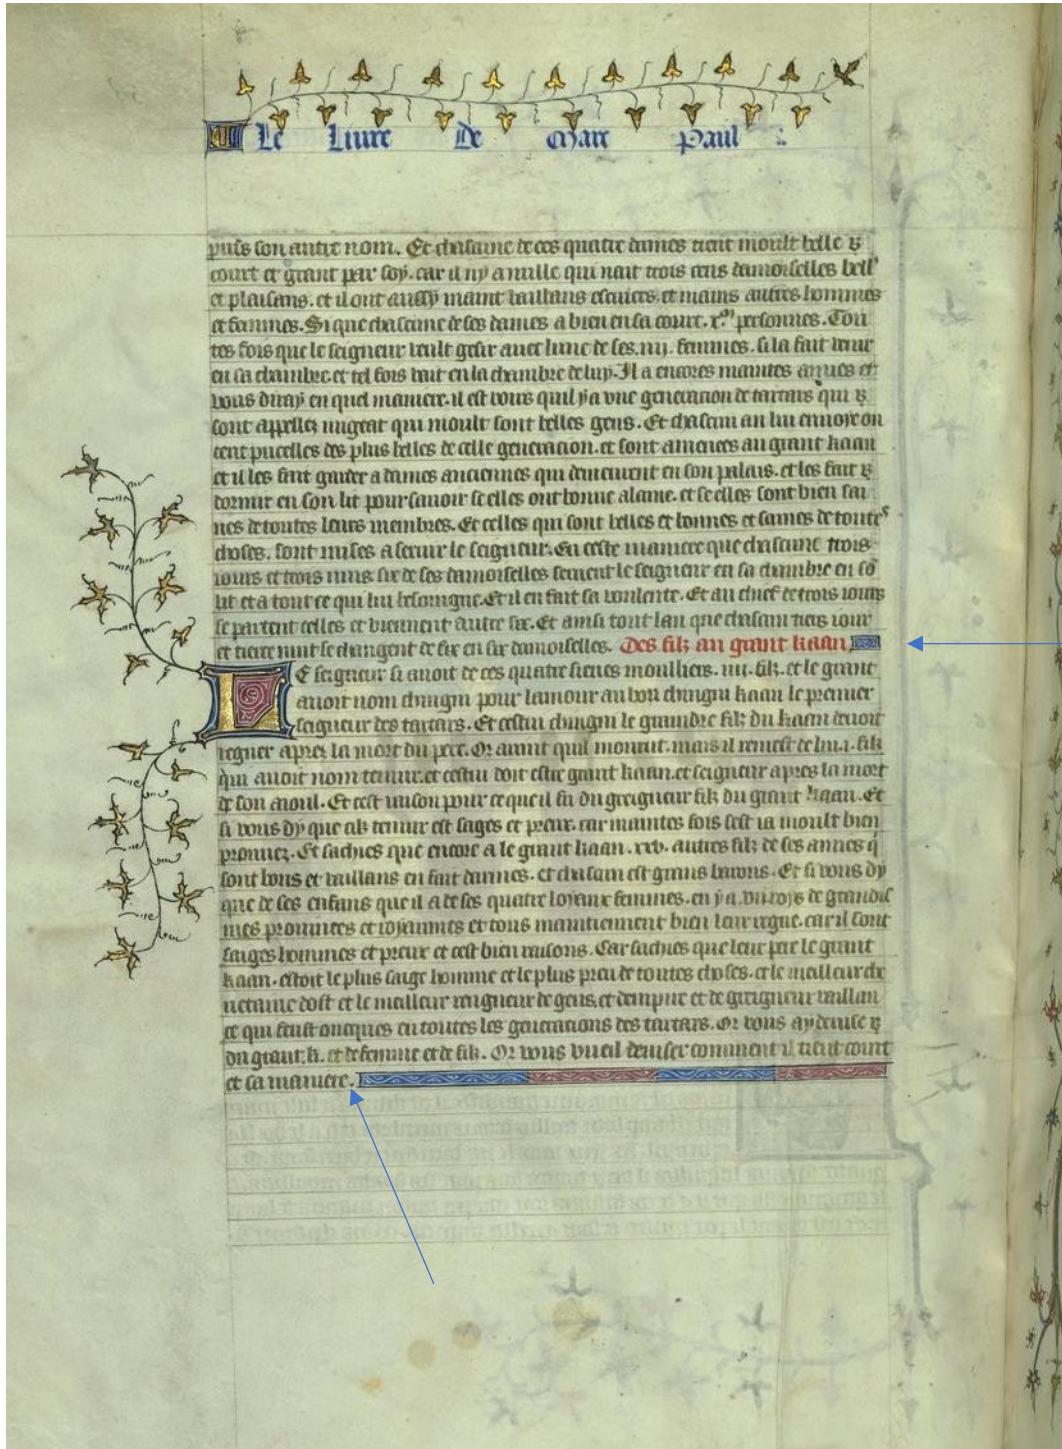 Le Livre De Marc Paul :
puis son autre nom. Et chascune de ces quatre dames tient moult belle
court et grant par soy. car il ny a nulle qui nait trois cens damoiselles bell'
et plaisans. et il ont aussy maint vaillans escuiers. et mains autres hommes
et femmes. Si que chascune de ses dames a bien en sa court. x.m personnes. Tou
tes fois que le seigneur veult gesir avec lune de ses .iiij. femmes. si la fait venir
en sa chambre. et tel fois vait en la chambre de luy. Il a encores maintes amies et
vous diray en quel maniere. il est voirs quil y a une generacion de tartars qui
sont appellez ungrat qui moult sont belles gens. Et chascun an lui envoie on
cent pucelles des plus belles de celle generacion. et sont amenees au grant kaan
et il les fait garder a dames anciennes qui demeurent en son palais. et les fait
dormir en son lit pour savoir se elles ont bonne alaine. et se elles sont bien sai
nes de toutes leurs membres. Et celles qui sont belles et bonnes et saines de toute s
choses. sont mises a servir le seigneur. En ceste maniere que chascune trois
iours et trois nuis six de ses damoiselles servent le seigneur en sa chambre en sõ
lit et a tout ce qui lui besoingne. Et il en fait sa voulente. Et au chief de trois iours
se partent celles et viennent autre six. Et ainsi tout lan que chascun tiers iour
et tierce nuit se changent de six en six damoiselles. Des filz au grant kaan
LE seigneur si avoit de ces quatre sienes moulliers. .iiij. filz. et le grant
avoit nom chingin pour lamour au bon chingin kaan le premier
seigneur des tartars. Et cestui chingin le graindre filz du kaan devoit
regner apres la mort du pere. Or avint quil morut. mais il remest de lui .i. filz
qui avoit nom temur. et cestui doit estre grant kaan. et seigneur apres la mort
de son aioul. Et cest raison pour ce que il fu du greigneur filz du grant kaan. Et
si vous dy que cilz temur est sages et preux. car maintes fois sest ia moult bien
prouvez. Et sachies que encore a le grant kaan .xxv. autres filz de ses amies q
sont bons et vaillans en fait darmes. et chascun est grans barons. Et si vous dy
que de ses enfans que il a de ses quatre loyaux femmes. en y a .vii. roys de grandis
mes provinces et royaumes et tous maintiennent bien leur regne. car il sont
saiges hommes et preux et cest bien raisons. Car sachies que leur pere le grant
kaan. estoit le plus saige homme et le plus preu de toutes choses. et le meilleur che
vetaine dost et le meilleur reigneur de gens. et dempire et de greigneur vaillan
ce qui feust oncques en toutes les generacions des tartars. Or vous ay devise
du grant. k. et de femme et de filz. Or vous vueil deviser comment il tient court
et sa maniere.